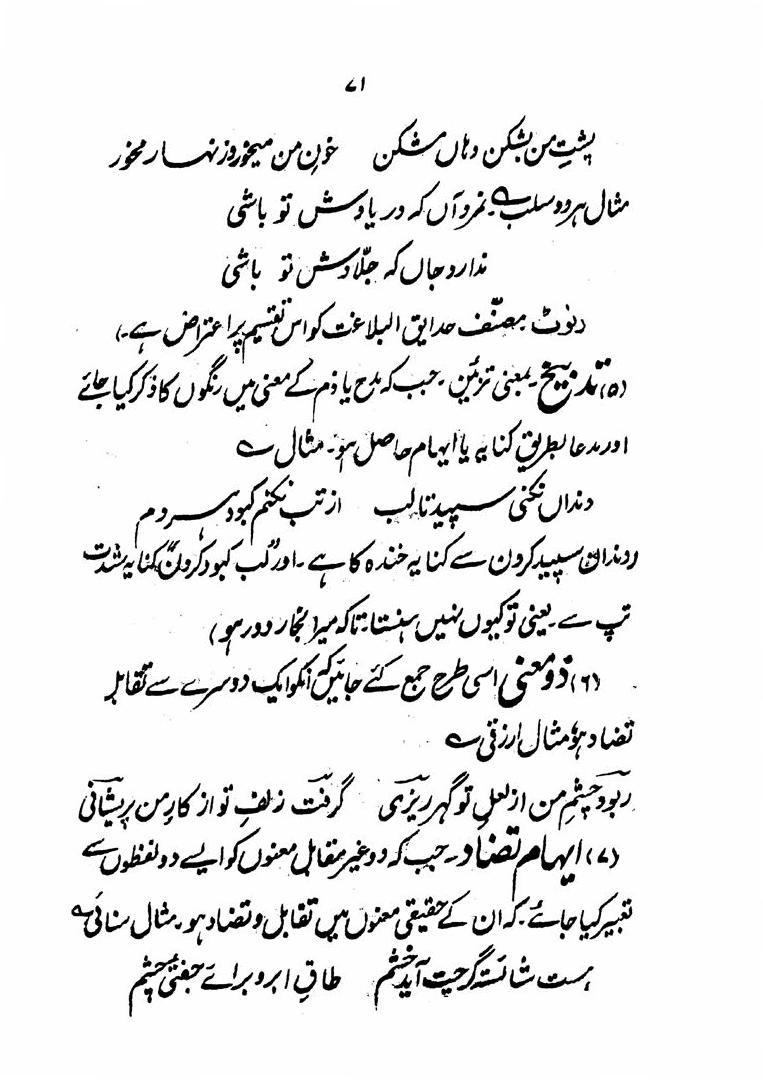 ۷۱
پشتِ من بشکن وہاں مشکن خونِ من میخور و زنہار مخور
مثال ہر دو سلب ؎ نمرد آں کہ در یادش تو باشی
ندارد جاں کہ جلّادش تو باشی
(نوٹ مصنّف حدایق البلاغت کو اس تقسیم پر اعتراض ہے۔)
(۵) تدبیخ۔ بمعنی تزئین۔ جب کہ مدح یا ذم کے معنی میں رنگوں کا ذکر کیا جائے
اور مدعا بطریقِ کنایہ یا ایہام حاصل ہو۔ مثال ؎
دنداں نکنی سپید تا لب از تب نکنم کبود ہر دم
(دندان سپید کردن سے کنایہ خندہ کا ہے۔ اور "لب کبود کردن" کنایہ شدت
تپ سے۔ یعنی تو کیوں نہیں ہنستا۔ تاکہ میرا بخار دور ہو)
(۶) دو معنی اسی طرح جمع کئے جائیں کہ انکو ایک دوسرے سے تقابل
تضاد ہو، مثال ارزقی ؎
ربود چشمِ من از لعلِ تو گہر ریزی گرفت زلفِ تو از کارِ من پریشانی
(۷) ایہام تضاد۔ جب کہ دو غیر مقابل معنوں کو ایسے دو لفظوں سے
تعبیر کیا جائے۔ کہ ان کے حقیقی معنوں میں تقابل و تضاد ہو۔ مثال سنائی ؎
ہست شائستہ گرچت آید خشم طاقِ ابرو برائے جفتیِ چشم